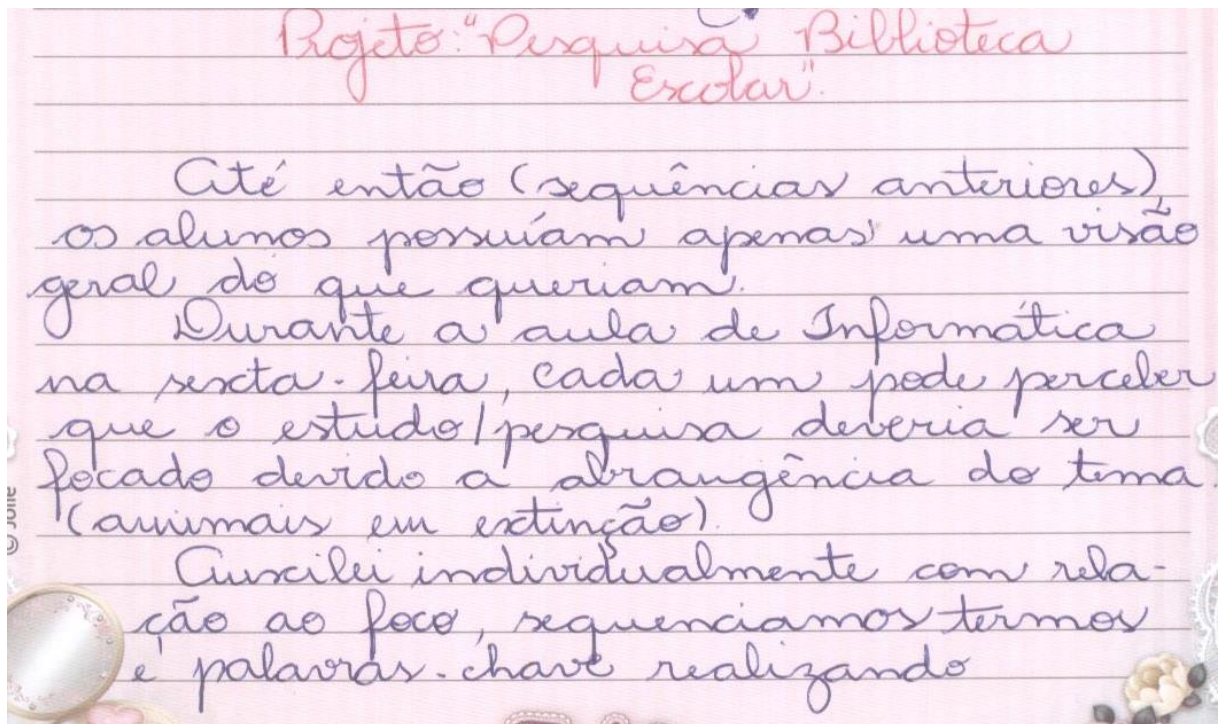 Projeto: "Pesquisa Biblioteca
Escolar".
Até então (sequências anteriores)
os alunos possuíam apenas uma visão
geral do que queriam.
Durante a aula de Informática
na sexta-feira, cada um pode perceber
que o estudo/pesquisa deveria ser
focado devido a abrangência do tema
(animais em extinção).
Auxilei individualmente com rela-
ção ao foco, sequenciamos termos
e palavras-chave realizando
© Jolie